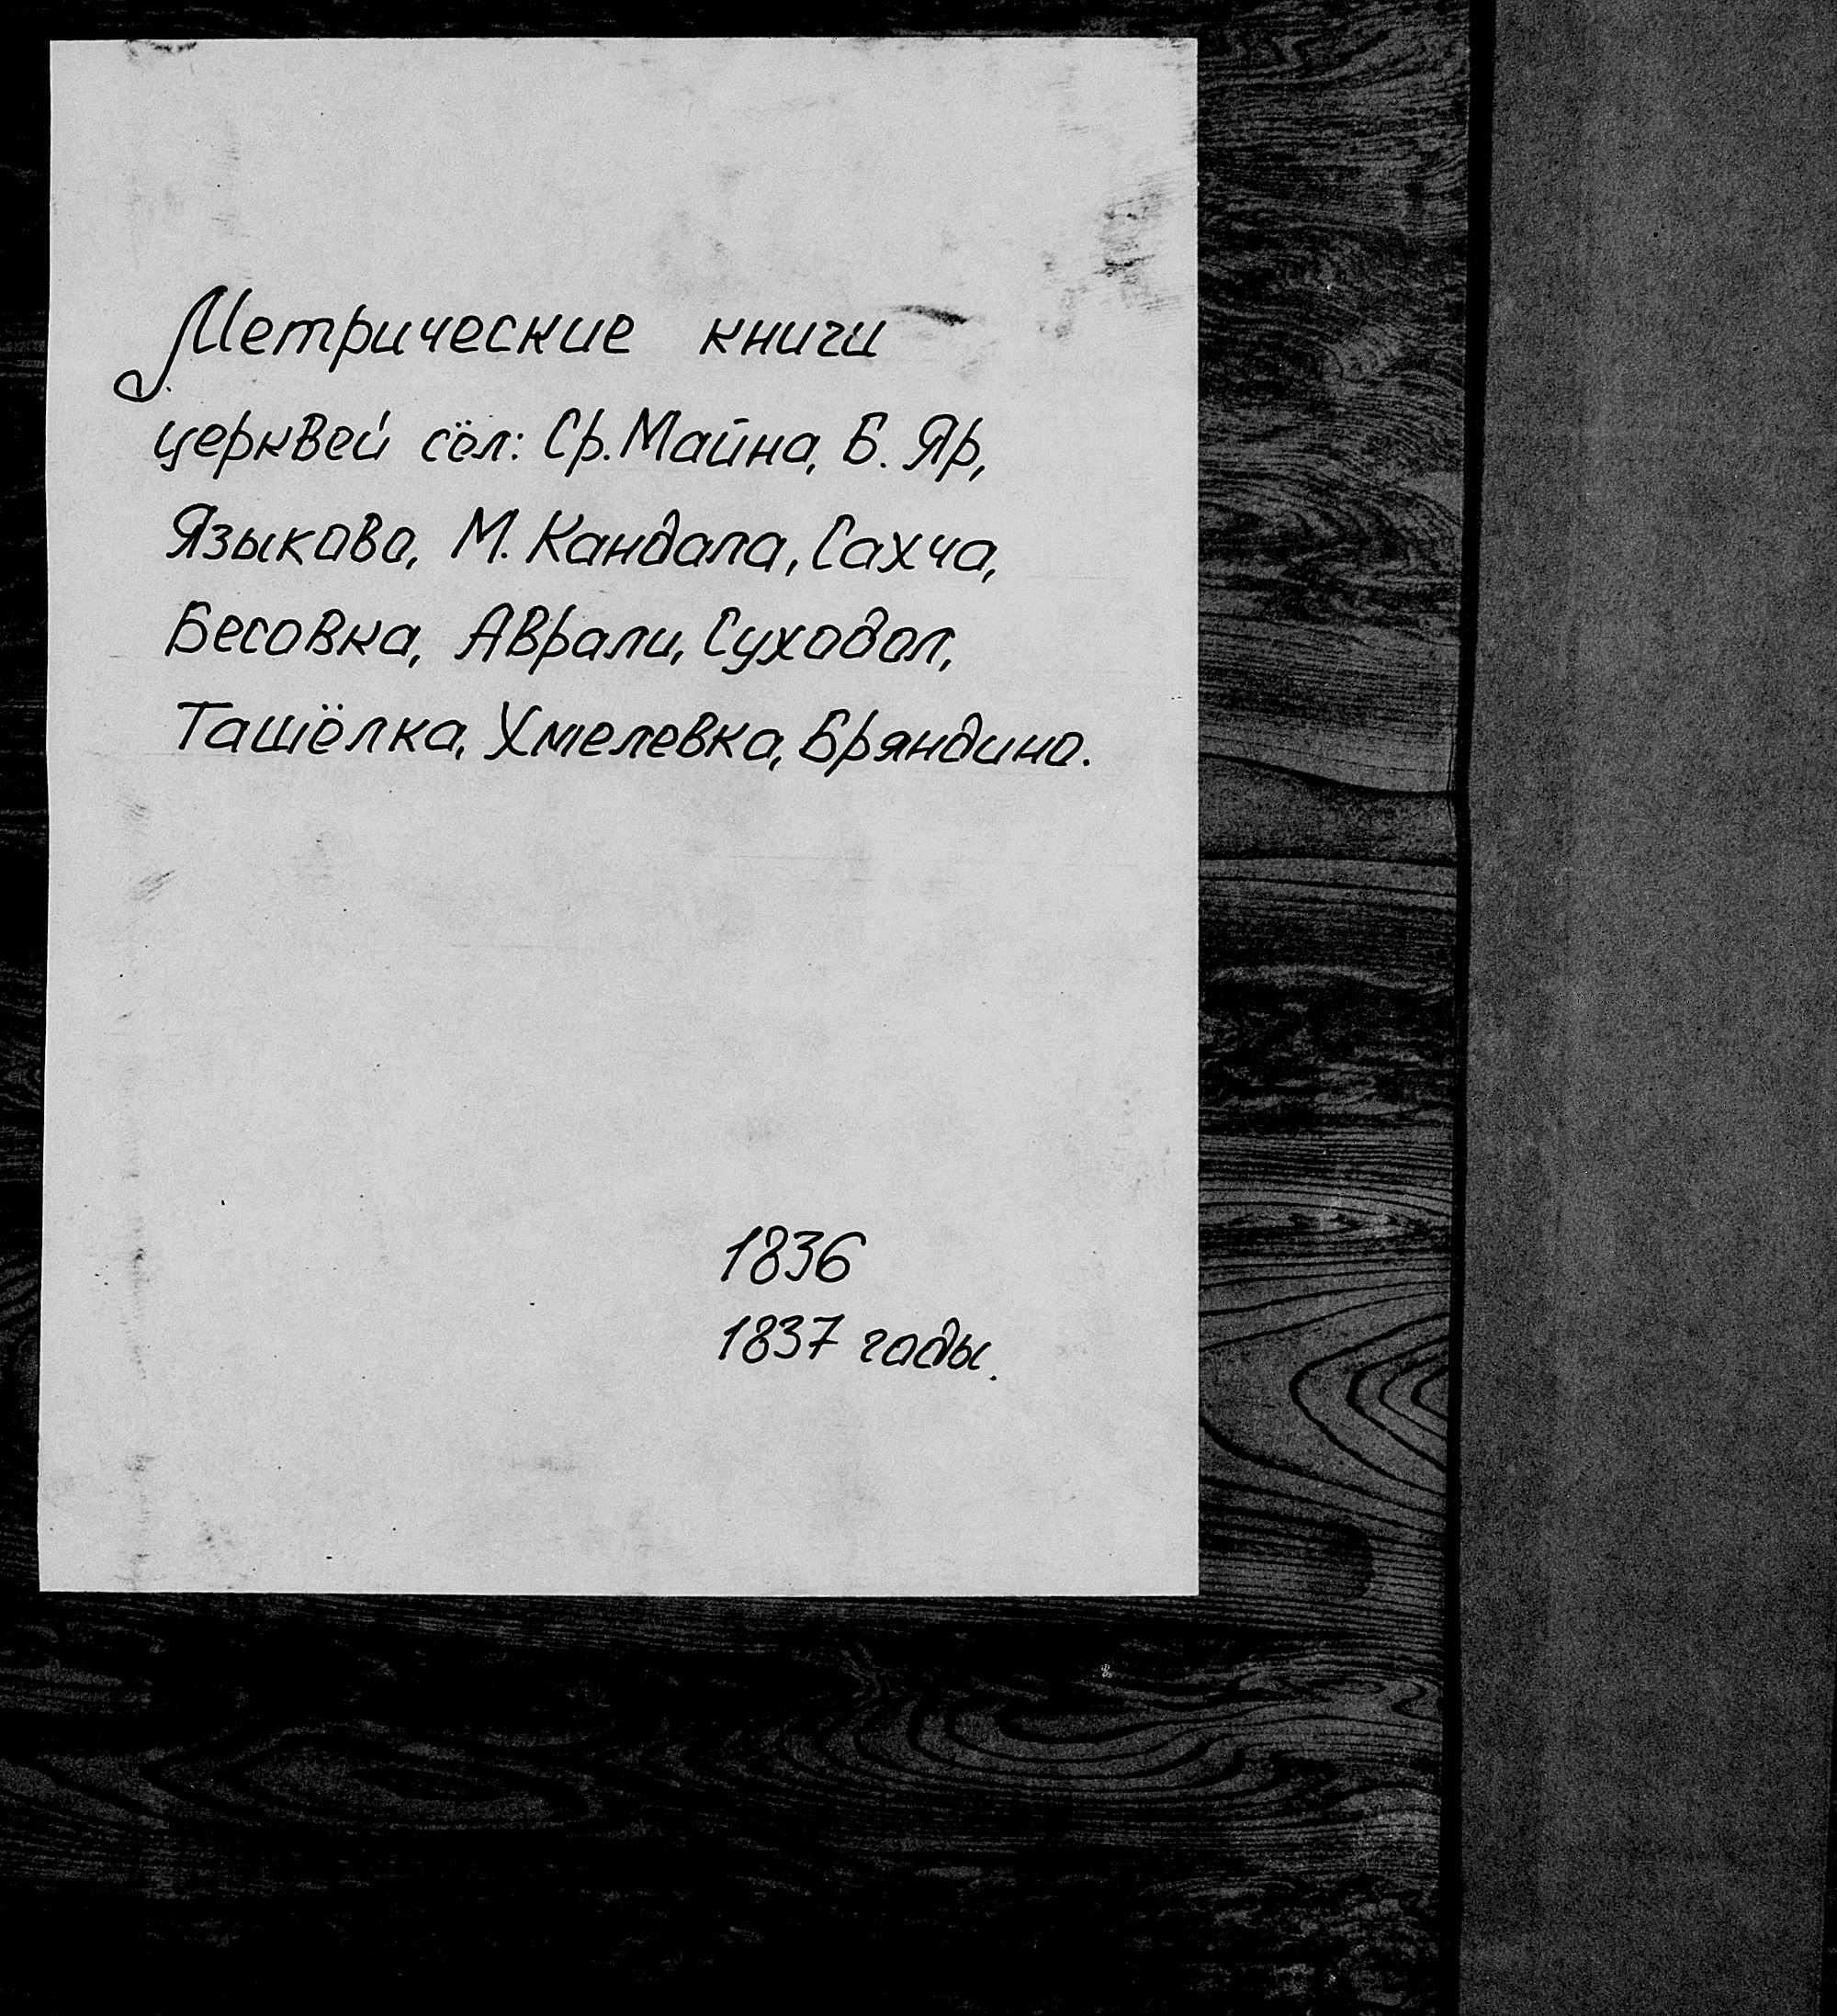 Метрические книги
церквей сёл: Ср. Майна, Б. Яр,
Языково, М. Кандала, Сахча,
Бесовка, Аврали, Суходол,
Ташёлка, Хмелевка, Бряндино.
1836
1837 годы.